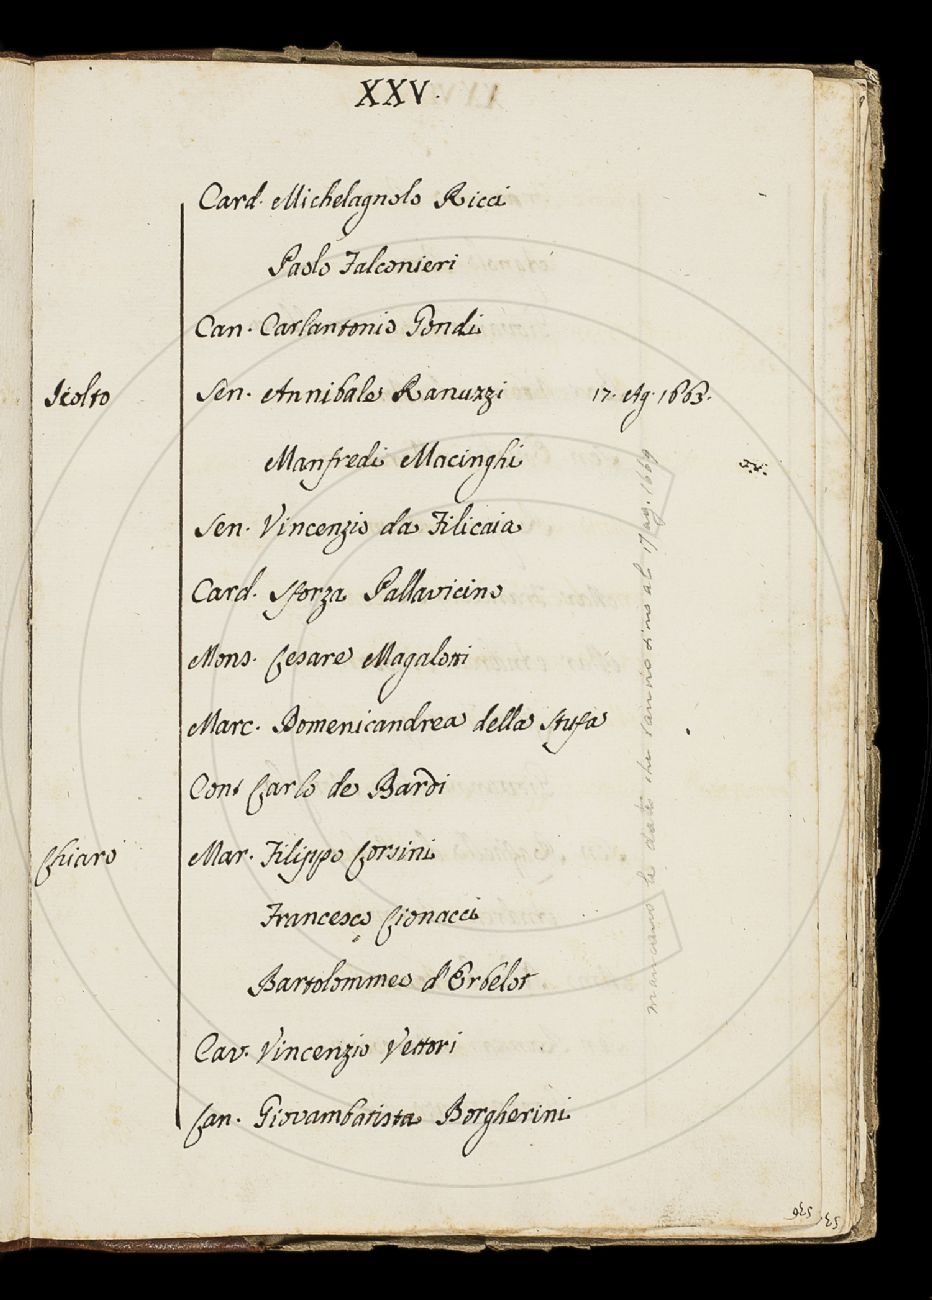 XXV.
Card. Michelagnolo Ricci
Paolo Falconieri
Can. Carlantonio Gondi
Sciolto Sen. Annibale Ranuzzi 17. Ag. 1663.
Manfredi Macinghi
Sen. Vincenzio da Filicaia
Card. Sforza Pallavicino
Mons. Cesare Magalotti
Marc. Domenicandrea della Stufa
Cont Carlo de Bardi
Chiaro Mar. Filippo Corsini
Francesco Cionacci
Bartolommeo d'Erbelot
Cav. Vincenzio Vettori
Can. Giovambatista Borgherini
mancano le date che vanno sino al 17 ag. 1669
536
535